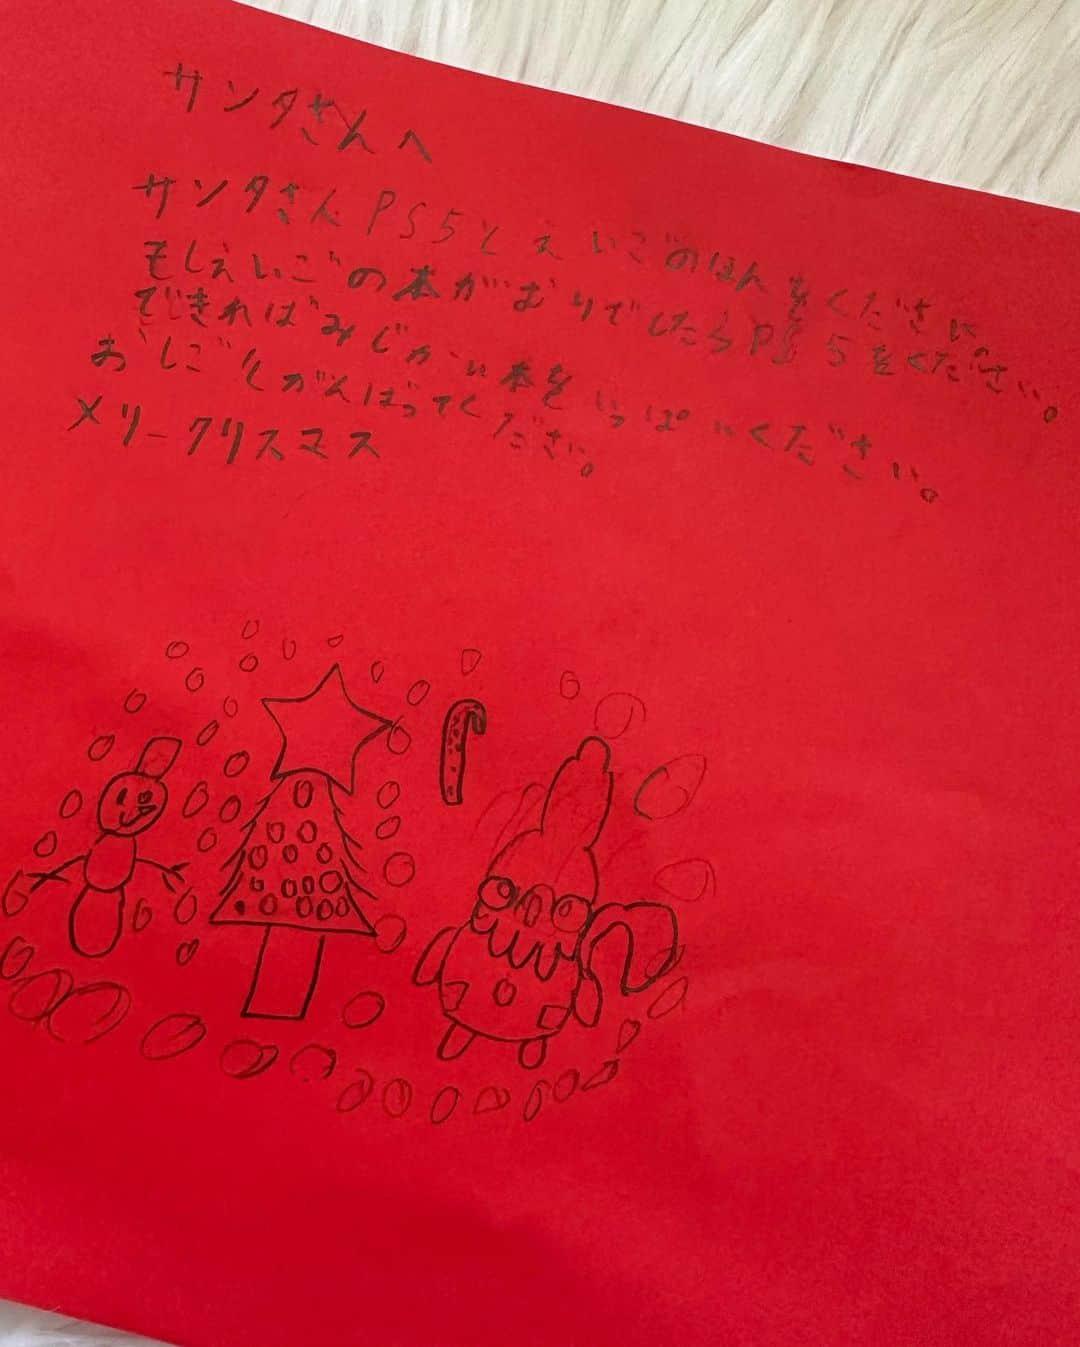 サンタさんへ
サンタさんPS5とえいごのほんをください。
もしえいごの本がむりでしたらPS5をください。
できればみじかい本をいっぱいください。
おしごとがんばってください。
メリークリスマス